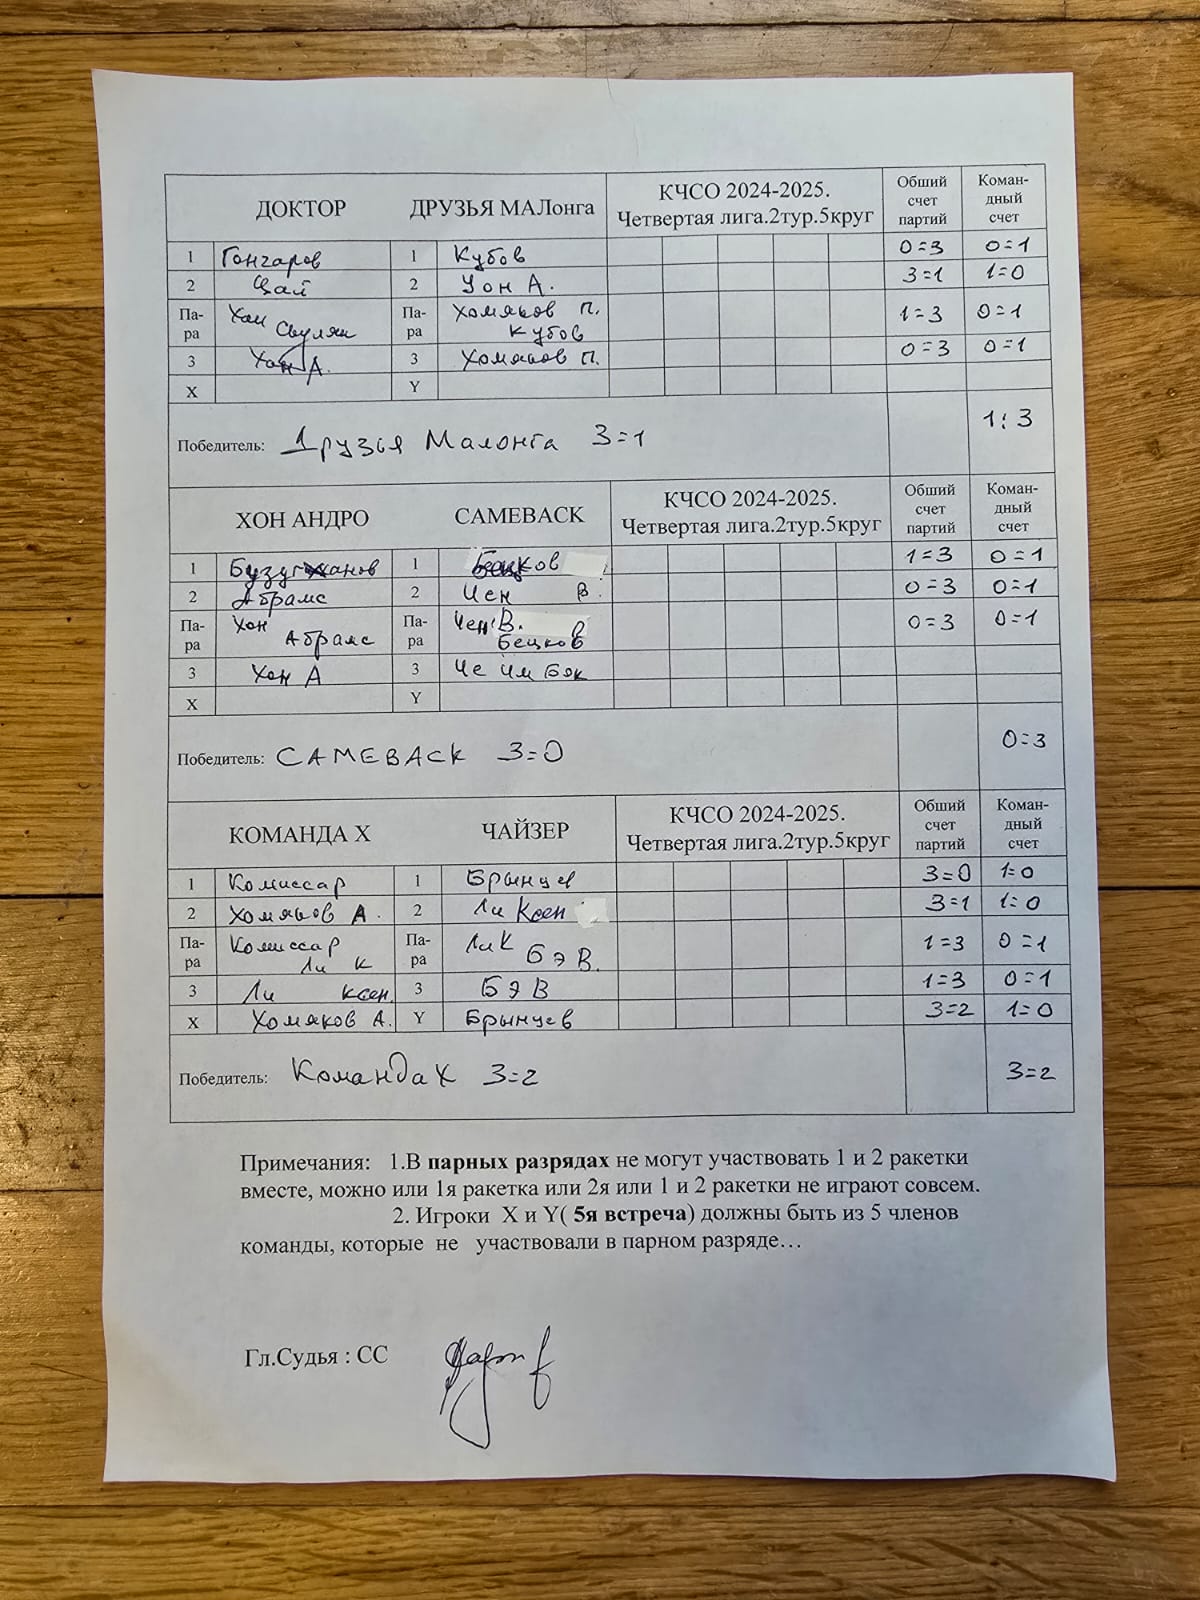 ДОКТОР ДРУЗЬЯ МАЛонга КЧСО 2024-2025. Четвертая лига.2тур.5круг Обший счет партий Коман-дный счет
1 Гончаров 1 Кубов 0=3 0=1
2 Цай 2 Уон А. 3=1 1=0
Па-ра Хан Па-ра Хомяков П. Кубов 1=3 0=1
3 Хан А. 3 Хомяков П. 0=3 0=1
X Y
Победитель: Друзья Малонга 3=1 1:3
ХОН АНДРО CAMEBACK КЧСО 2024-2025. Четвертая лига.2тур.5круг Обший счет партий Коман-дный счет
1 Бузугханов 1 Бецков 1=3 0=1
2 Абрамс 2 Чен В. 0=3 0=1
Па-ра Хон Абрамс Па-ра Чен В. Бецков 0=3 0=1
3 Хон А 3 Че Им Бок
X Y
Победитель: CAMEBACK 3=0 0=3
КОМАНДА Х ЧАЙЗЕР КЧСО 2024-2025. Четвертая лига.2тур.5круг Обший счет партий Коман-дный счет
1 Комиссар 1 Брынцев 3=0 1=0
2 Хомяков А. 2 Ли Ксен 3=1 1=0
Па-ра Комиссар Ли К Па-ра Ли К Бэ В. 1=3 0=1
3 Ли ксен. 3 Бэ В 1=3 0=1
X Хомяков А. Y Брынцев 3=2 1=0
Победитель: Команда Х 3=2 3=2
Примечания: 1.В парных разрядах не могут участвовать 1 и 2 ракетки
вместе, можно или 1я ракетка или 2я или 1 и 2 ракетки не играют совсем.
2. Игроки X и Y( 5я встреча) должны быть из 5 членов
команды, которые не участвовали в парном разряде…
Гл.Судья : СС